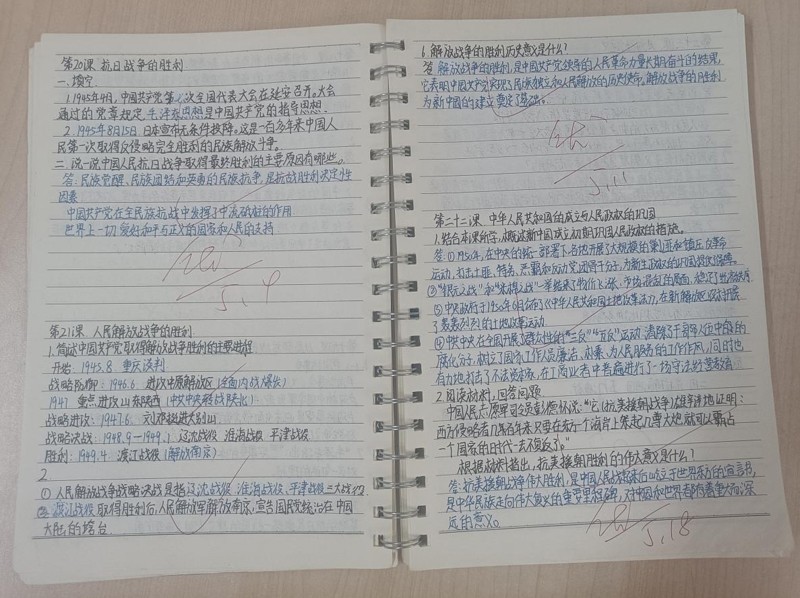 第20课 抗日战争的胜利
一.填空
1.1945年4月,中国共产党第七次全国代表大会在延安召开。大会
通过的党章规定毛泽东思想是中国共产党的指导思想.
2.1945年8月15日 日本宣布无条件投降。这是一百多年来中国人
民第一次取得反侵略完全胜利的民族解放斗争。
二.说一说中国人民抗日战争取得最终胜利的主要原因有哪些。
答:民族觉醒、民族团结和英勇的民族抗争,是抗战胜利决定性
因素
中国共产党在全民族抗战中发挥了中流砥柱的作用
世界上一切爱好和平与正义的国家和人民的支持
5.9
第21课 人民解放战争的胜利
1.简述中国共产党取得解放战争胜利的主要进程
开始:1945.8 重庆谈判
战略防御:1946.6 进攻中原解放区(全面内战爆发)
1947 重点进攻山东陕西
战略进攻:1947.6 刘邓挺进大别山
战略决战:1948.9-1949.1 辽沈战役 淮海战役 平津战役
胜利:1949.4 渡江战役(解放南京)
2
①人民解放战争战略决战是指辽沈战役 淮海战役、平津战役三大战役
②渡江战役取得胜利后,人民解放军解放南京,宣告国民党统治在中国
大陆的垮台.
6.解放战争的胜利历史意义是什么?
答 解放战争的胜利,是中国共产党领导的人民革命力量长期奋斗的结果,
它表明中国共产党实现了民族独立和人民解放的历史使命,解放战争的胜利
为新中国的建立奠定了基础。
5.11
第二十二课 中华人民共和国的成立与人民政权的巩固
1.结合本课所学,概述新中国成立初期巩固人民政权的措施。
答①1950年,在中央的统一部署下,各地开展了大规模的剿匪和镇压反革命
运动,打击土匪、特务、恶霸和反动党团骨干分子,为新生政权的巩固提供保障.
②"银元之战"和"米棉之战"一举结束了物价飞涨、市场混乱的局面,稳定了
③中央政府于1950年6月颁布了《中华人民共和国土地改革法》,在新解放区分期开展
了轰轰烈烈的土地改革运动
④中共中央在全国开展了群众性的"三反""五反"运动,清除了干部队伍中的
腐化分子,树立了国家工作人员廉洁、朴素、为人民服务的工作作风,同时也
有力地打击了不法资本家,在工商业者中普遍进行了一场守法经营教育
2.阅读材料,回答问题
中国人民志愿军司令员彭德怀说:"它(抗美援朝战争)雄辩地证明:
西方侵略者几百年来只要在东方一个海岸上架起几尊大炮就可以霸占
一个国家的时代一去不复返了。"
根据材料指出,抗美援朝胜利的伟大意义是什么?
答:抗美援朝战争伟大胜利,是中国人民站起来后屹立于世界东方的宣言书,
是中华民族走向伟大复兴的重要里程碑,对中国和世界都有着重大而深
远的意义。
5.18